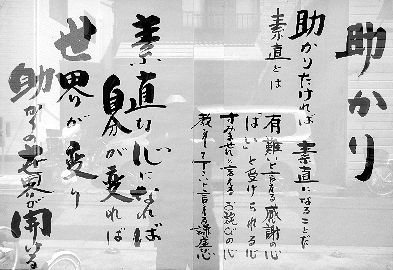 助かり
助かりたければ 素直になることだ
素直とは
有難いと言える感謝の心
はいと受けられる心
すみませんと言える お詫びの心
教えて下さいと言える謙虚心
素直な心になれば
自分が変れば
世界が変り
助かりの世界が開いてくる